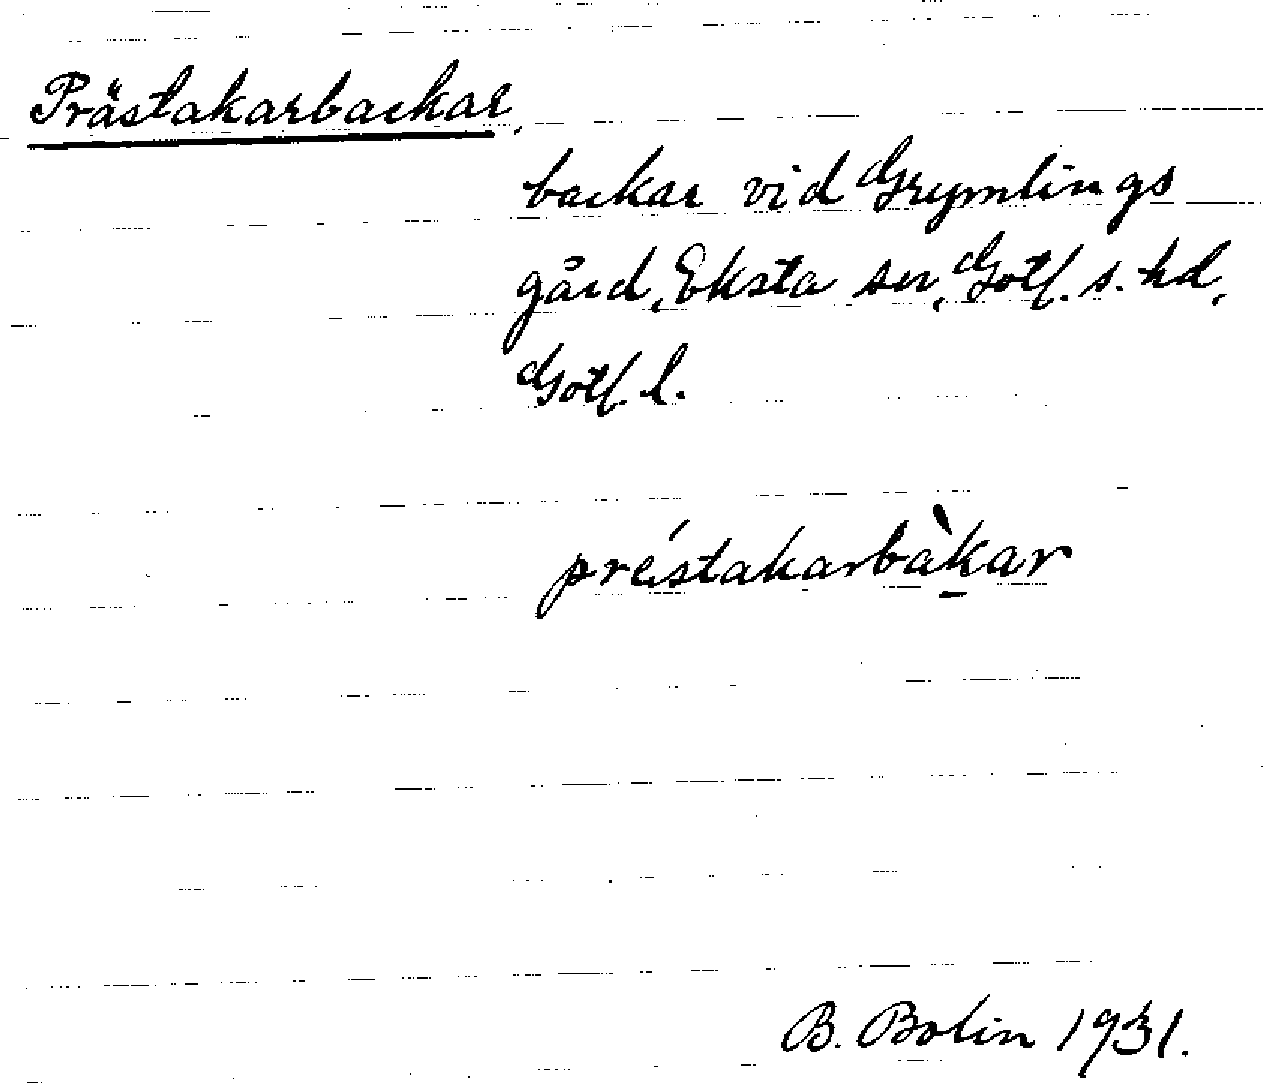 Prästakarbackar,
backar vid Grymlings
gård, Eksta sn, Gotl. s. hd,
Gotl. l.
préstakarbàk̠ar
B. Bolin 1931.